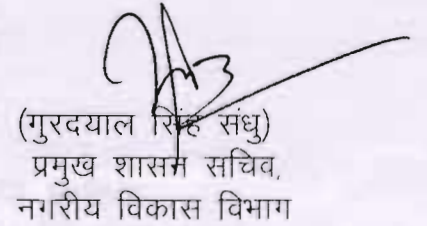 (गुरदयाल सिंह संधु)
प्रमुख शासन सचिव,
नगरीय विकास विभाग